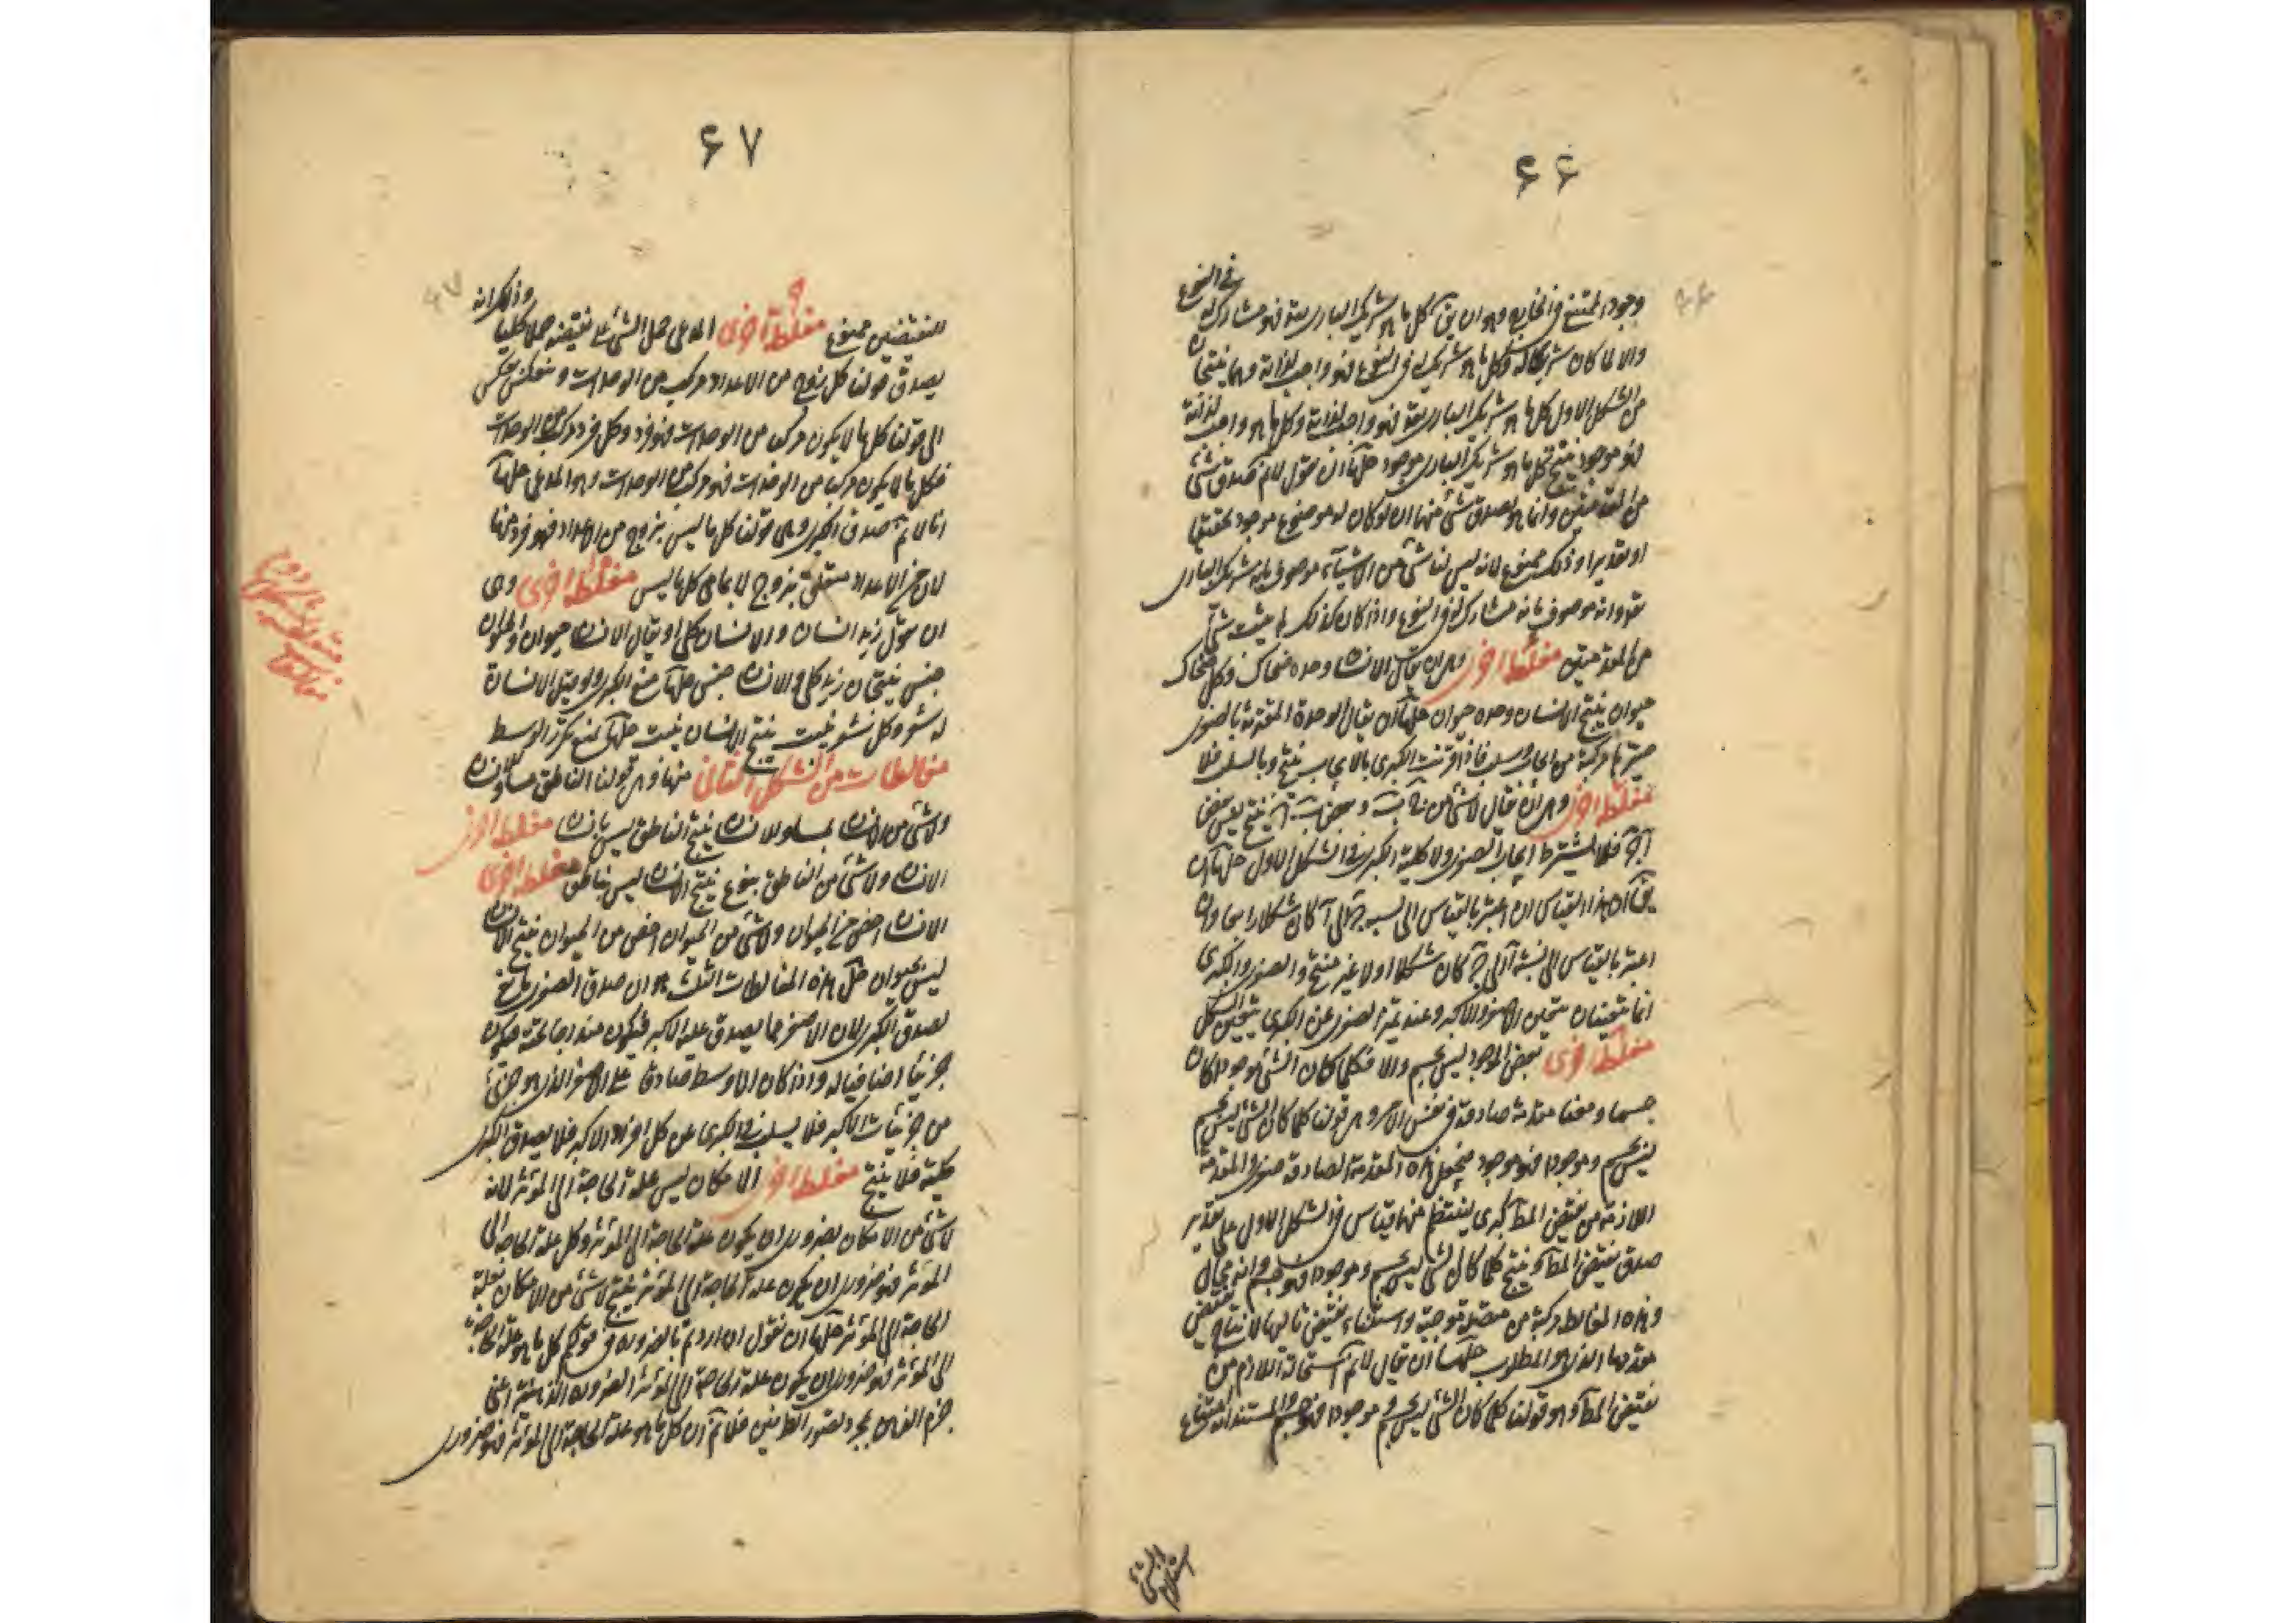 ۶۶
في النوع
وجود الممتنع في الخارج وهو ان يق كل ما هو شريك الباري تعه فهو مشارك له
والا لما كان شريكا له وكل ما هو شريك له في النوع فهو واجب لذاته وهما ينتجان
من الشكل الاول كل ما هو شريك الباري تعه فهو واجب لذاته وكل ما هو واجب لذاته
فهو موجود ينتج كل ما هو شريك الباري موجود حلها ان نقول لانم صدق شئ
من المقدمتين وانما هو يصدق شئ منهما ان لو كان له موضوع موجود تحقيقا
او تقديرا وذلك ممنوع لانه ليس لنا شئ من الاشياء موصوف بانه شريك الباري
تعه وانه موصوف بانه مشارك له في النوع واذا كان كذلك لم يثبت شئ
من المقدمتين مغلطة اخرى وهي ان يقال الانسان وحده ضحاك وكل ضحاك
حيوان ينتج الانسان وحده حيوان حلها ان يقال الوحدة المقترنة بالصغرى
صيرتها مركبة من ايجاب وسلب فاذا اقترنت الكبرى بالايجاب ينتج وبالسلب فلا
مغلطة اخرى وهي ان يقال لا شئ من ج ب وبعض ب ا ينتج بعض
ا ج فلا يشترط ايجاب الصغرى ولا كلية الكبرى في الشكل الاول حلها ان
يق ان هذا القياس ان اعتبر بالقياس الى نسبة ج الى ا كان شكلا رابعا وان
اعتبر بالقياس الى نسبة ا الى ج كان شكلا اولا غير منتج والصغرى والكبرى
انما تتعينان بتعين الاصغر والاكبر وعند تميز الصغرى عن الكبرى يتعين الشكل
مغلطة اخرى بعض الموجود ليس بجسم والا فكلما كان الشئ موجودا كان
جسما ومعنا مقدمة صادقة في نفس الامر وهي قولنا كلما كان الشئ ليس بجسم
ليس بجسم وموجودا فهو موجود فنجعل هذه المقدمة الصادقة صغرى والمقدمة
اللازمة من نقيض المط كبرى لينتظم منهما قياس في الشكل الاول على تقدير
صدق نقيض المط وينتج كلما كان الشئ ليس بجسم وموجودا فهو جسم وانه محال
وهذه المغالطة مركبة من متصلة موجبة واستثناء نقيض تاليها لانتاج نقيض
مقدمها الذي هو المطلوب حلها ان يقال لانم استحالة اللازم من
نقيض المط وهو قولنا كلما كان الشئ ليس بجسم وموجودا فهو جسم والمستند انه امتناع
استلزام الشئ
۶۷
وذلك انه
النقيضين ممنوع مغلطة اخرى المدعى حمل الشئ على نقيضه حملا كليا
يصدق قولنا كل زوج من الاعداد مركب من الوحدات وينعكس بعكس
الى قولنا كل ما لا يكون مركبا من الوحدات فهو فرد وكل فرد مركب من الوحدات
فكل ما لا يكون مركبا من الوحدات فهو مركب من الوحدات وهو المدعى حلها
انا لانم صدق الكبرى وهي قولنا كل ما ليس بزوج من الاعداد فهو فرد منها
لان من الاعداد بزوج لا كل ما ليس مغلطة اخرى وهي
ان نقول زيد انسان والانسان كلى او يقال الانسان حيوان والحيوان
جنس ينتجان زيد كلى والانسان جنس حلها منع الكبرى ولو قيل الانسان
له شعر وكل شعر ينبت ينتج الانسان ينبت حلها بمنع تكرر الوسط
مغالطات من الشكل الثاني منها وهي قولنا الناطق مساو للانسان
ولا شئ من الانسان بمساو للانسان ينتج الناطق ليس بانسان مغلطة اخرى
الانسان ولا شئ من الناطق بنوع ينتج الانسان ليس بناطق مغلطة اخرى
الانسان اخص من الحيوان ولا شئ من الحيوان اخص من الحيوان ينتج الانسان
ليس بحيوان حل هذه المغالطات الثلث هو ان صدق الصغرى مانع
لصدق الكبرى لان الاصغر مما يصدق عليه الاكبر فيكون مندرجا تحته فيكون
جزئيا اضافيا له واذا كان الاوسط صادقا على الاصغر الذي هو جزئي
من جزئيات الاكبر فلا يسلب في الكبرى عن كل افراد الاكبر فلا يصدق الكبرى
كلية فلا ينتج مغلطة اخرى الامكان ليس علة الحاجة الى المؤثر لانه
لا شئ من الامكان بضروري ان يكون علة الحاجة الى المؤثر وكل علة الحاجة الى
المؤثر فهو ضروري ان يكون علة الحاجة الى المؤثر ينتج لا شئ من الامكان بعلة
الحاجة الى المؤثر حلها ان نقول ان اردتم بالضرورة في قولكم كل ما هو علة الحاجة
الى المؤثر فهو ضروري ان يكون علة الحاجة الى المؤثر الضرورة الذهنية اعني
جزم الذهن بمجرد تصور الطرفين فلانم ان كل ما هو علة الحاجة الى المؤثر فهو ضروري